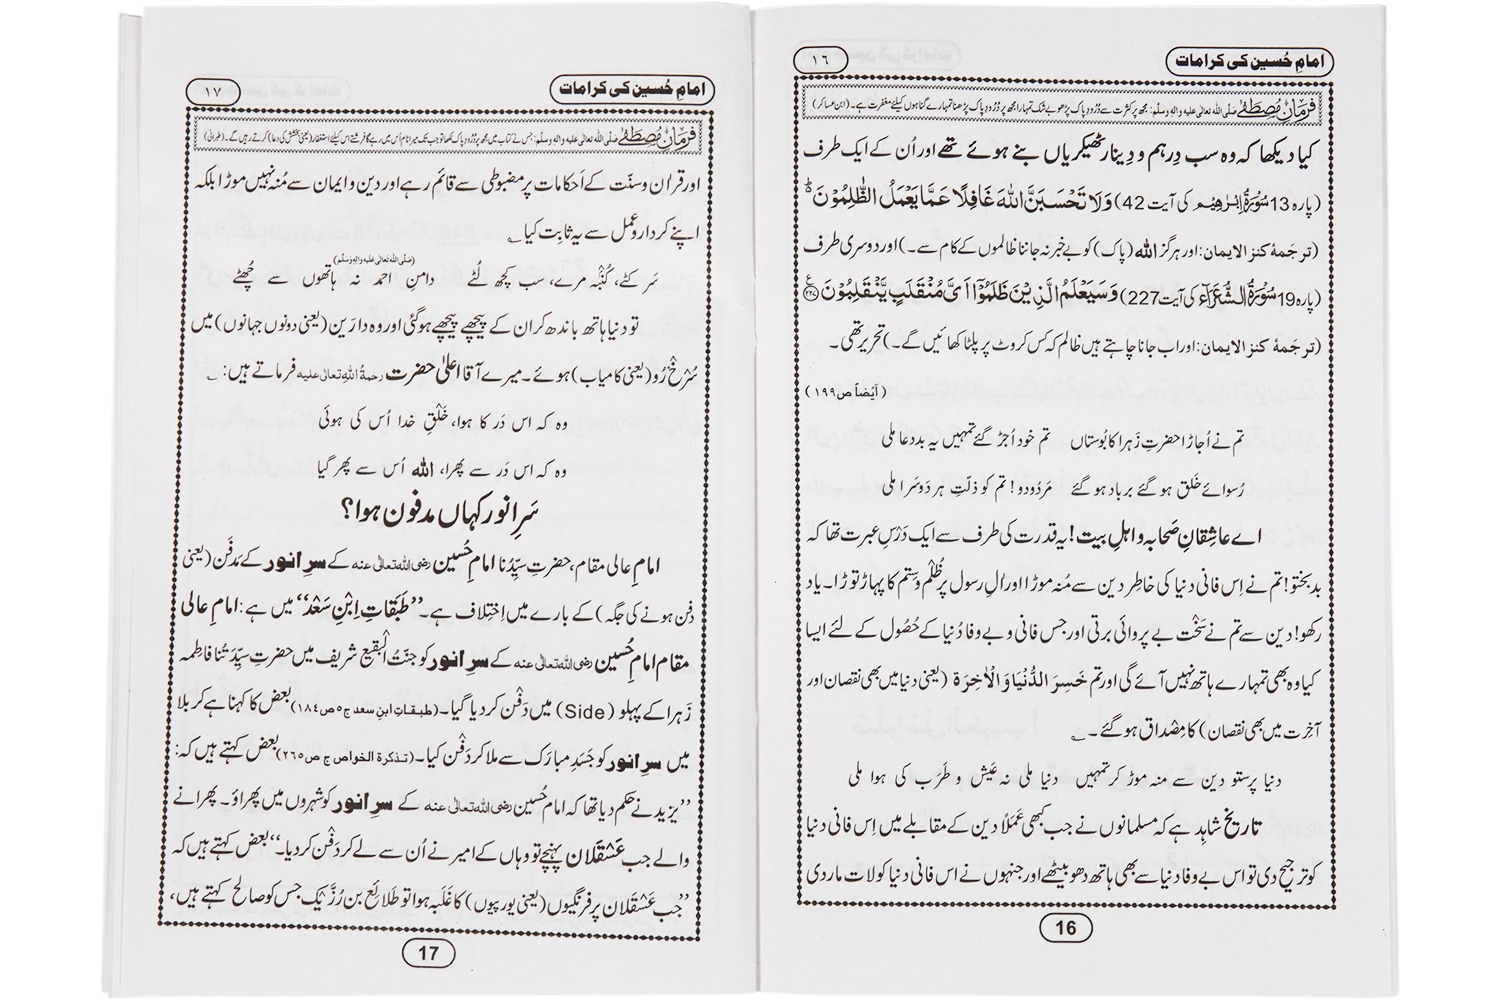 امامِ حُسین کی کرامات
١٦
فرمانِ مصطفٰے صلَّی اللہ تعالٰی علیہ واٰلہٖ وسلَّم: مجھ پر کثرت سے دُرُود پاک پڑھو بے شک تمہارا مجھ پر دُرُود پاک پڑھنا تمہارے گناہوں کیلئے مغفرت ہے۔ (ابن عساکر)
کیا دیکھا کہ وہ سب دِرہم و دِینار ٹھیکریاں بنے ہوئے تھے اور اُن کے ایک طرف
(پارہ 13 سُوْرَۃُ اِبْرٰهِیْم کی آیت 42) وَلَا تَحْسَبَنَّ اللّٰهَ غَافِلًا عَمَّا یَعْمَلُ الظّٰلِمُوْنَ ؕ
(ترجَمۂ کنز الایمان: اور ہرگز اللہ (پاک) کو بے خبر نہ جاننا ظالموں کے کام سے۔) اور دوسری طرف
(پارہ 19 سُوْرَۃُ الشُّعَرَآء کی آیت 227) وَسَیَعْلَمُ الَّذِیْنَ ظَلَمُوْۤا اَیَّ مُنْقَلَبٍ یَّنْقَلِبُوْنَ ﴿۲۲۷﴾
(ترجَمۂ کنز الایمان: اور اب جانا چاہتے ہیں ظالم کہ کس کروٹ پر پلٹا کھائیں گے۔) تحریر تھی۔
(اَیضاً ص ١٩٩)
تم نے اُجاڑا حضرتِ زَہرا کا بُوستاں تم خود اُجڑ گئے تمہیں یہ بددعا ملی
رُسوائے خَلق ہو گئے برباد ہو گئے مَردُودو! تم کو ذلّت ہر دَوسَرا ملی
اے عاشِقانِ صَحابہ و اہلِ بیت! یہ قدرت کی طرف سے ایک دَرْسِ عبرت تھا کہ
بدبختو! تم نے اِس فانی دنیا کی خاطِر دین سے مُنہ موڑا اور اٰلِ رسول پر ظُلْم و سِتَم کا پہاڑ توڑا۔ یاد
رکھو! دین سے تم نے سَخْت بے پروائی برتی اور جس فانی و بے وفا دُنیا کے حُصُول کے لئے ایسا
کیا وہ بھی تمہارے ہاتھ نہیں آئے گی اور تم خَسِرَ الدُّنْیَا وَالْاٰخِرَةَ (یعنی دنیا میں بھی نقصان اور
آخِرت میں بھی نقصان) کا مِصْداق ہو گئے۔
دنیا پرستو دین سے منہ موڑ کر تمہیں دنیا ملی نہ عَیش و طَرَب کی ہوا ملی
تاریخ شاہِد ہے کہ مسلمانوں نے جب کبھی عَمَلًا دین کے مقابلے میں اِس فانی دنیا
کو ترجیح دی تو اس بے وفا دنیا سے بھی ہاتھ دھو بیٹھے اور جنہوں نے اس فانی دنیا کو لات مار دی
16
امامِ حُسین کی کرامات
١٧
فرمانِ مصطفٰے صلَّی اللہ تعالٰی علیہ واٰلہٖ وسلَّم: جس نے کتاب میں مجھ پر دُرُود پاک لکھا تو جب تک میرا نام اُس میں رہے گا فرشتے اس کیلئے استغفار (یعنی بخشش کی دعا) کرتے رہیں گے۔ (طبرانی)
اور قران و سنّت کے اَحکامات پر مضبوطی سے قائم رہے اور دین و ایمان سے مُنہ نہیں موڑا بلکہ
اپنے کردار و عمل سے یہ ثابت کیا
سَر کٹے، کُنْبہ مرے، سب کچھ لُٹے دامنِ احمد نہ ہاتھوں سے چُھٹے
(صلَّی اللہ تعالٰی علیہ واٰلہٖ وسلَّم)
تو دنیا ہاتھ باندھ کر ان کے پیچھے پیچھے ہو گئی اور وہ دارَین (یعنی دونوں جہانوں) میں
سُرخ رُو (یعنی کامیاب) ہوئے۔ میرے آقا اعلٰی حضرت رحمۃُ اللہِ تعالٰی علیہ فرماتے ہیں:
وہ کہ اس دَر کا ہوا، خَلْقِ خدا اُس کی ہوئی
وہ کہ اس دَر سے پھرا، اللہ اُس سے پھر گیا
سَرِ انور کہاں مدفون ہوا؟
امامِ عالی مقام، حضرتِ سیِّدُنا امام حُسین رضی اللہ تعالٰی عنہ کے سرِ انور کے مَدفَن (یعنی
دفن ہونے کی جگہ) کے بارے میں اِختِلاف ہے۔ ’’طَبَقاتِ اِبْنِ سَعْد‘‘ میں ہے: امامِ عالی
مقام امام حُسین رضی اللہ تعالٰی عنہ کے سرِ انور کو جنّتُ الْبَقیع شریف میں حضرتِ سیِّدَتُنا فاطِمہ
زَہرا کے پہلو (Side) میں دَفْن کر دیا گیا۔ (طبقاتِ ابنِ سعد ج ٥ ص ١٨٤) بعض کا کہنا ہے کربلا
میں سرِ انور کو جَسَدِ مبارَک سے ملا کر دَفْن کیا۔ (تذکرۃ الخواص ج ص ٢٦٥) بعض کہتے ہیں کہ:
’’یزید نے حکم دیا تھا کہ امام حُسین رضی اللہ تعالٰی عنہ کے سرِ انور کو شہروں میں پھراؤ۔ پھرانے
والے جب عَسْقَلان پہنچے تو وہاں کے امیر نے اُن سے لے کر دَفْن کر دیا۔‘‘ بعض کہتے ہیں کہ
’’جب عَسْقَلان پر فرنگیوں (یعنی یورپیوں) کا غَلَبہ ہوا تو طَلائِع بن رُزّیک جس کو صالح کہتے ہیں،
17